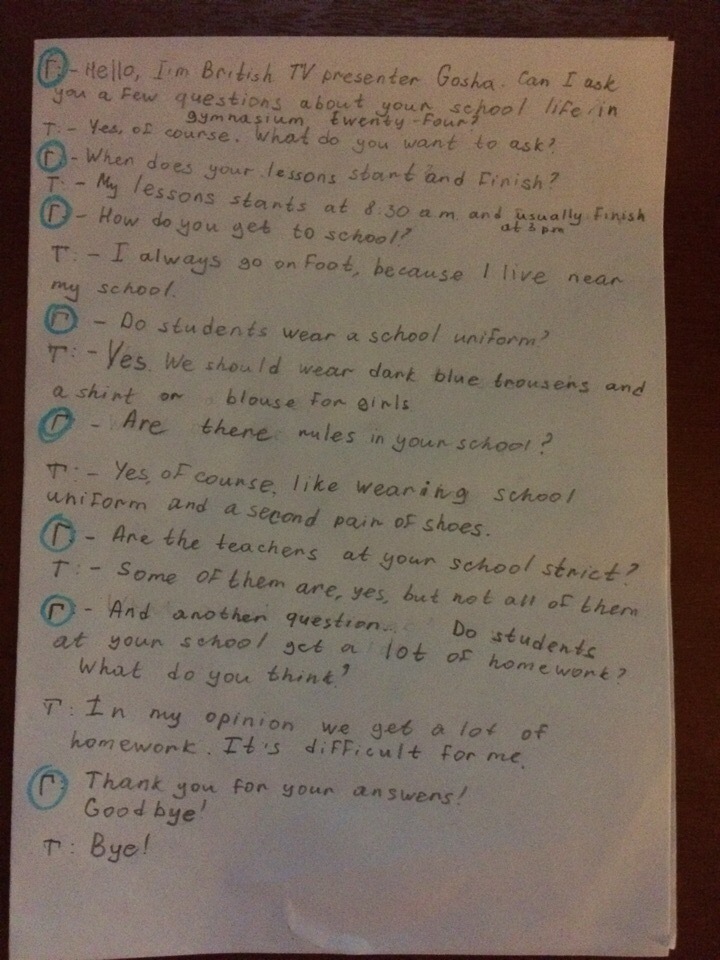 Г: - Hello, I'm British TV presenter Gosha. Can I ask
you a few questions about your school life in
gymnasium twenty-four?
T: - Yes, of course. What do you want to ask?
Г: - When does your lessons start and finish?
T: - My lessons starts at 8.30 a.m. and usually finish
at 3 pm
Г: - How do you get to school?
T: - I always go on foot, because I live near
my school.
Г: - Do students wear a school uniform?
T: - Yes. We should wear dark blue trousers and
a shirt or blouse for girls
Г: - Are there rules in your school?
T: - Yes, of course, like wearing school
uniform and a second pair of shoes.
Г: - Are the teachers at your school strict?
T: - Some of them are, yes, but not all of them
Г: - And another question... Do students
at your school get a lot of homework?
What do you think?
T: In my opinion we get a lot of
homework. It's difficult for me.
Г: Thank you for your answers!
Goodbye!
T: Bye!